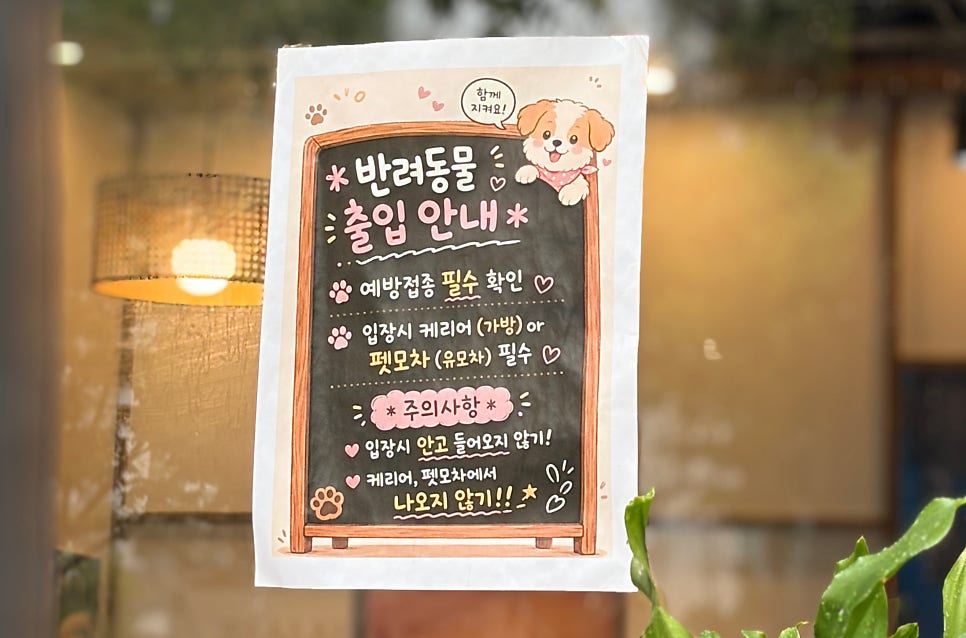 함께
지켜요!
반려동물
출입 안내
예방접종 필수 확인
입장시 케리어 (가방) or
펫모차 (유모차) 필수
* 주의사항 *
입장시 안고 들어오지 않기!
케리어, 펫모차에서
나오지 않기!!